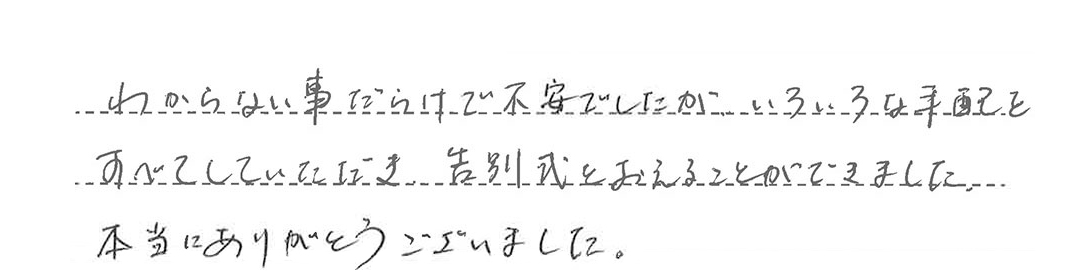 わからない事だらけで不安でしたが、いろいろな手配を
すべてしていただき、告別式をおえることができました。
本当にありがとうございました。